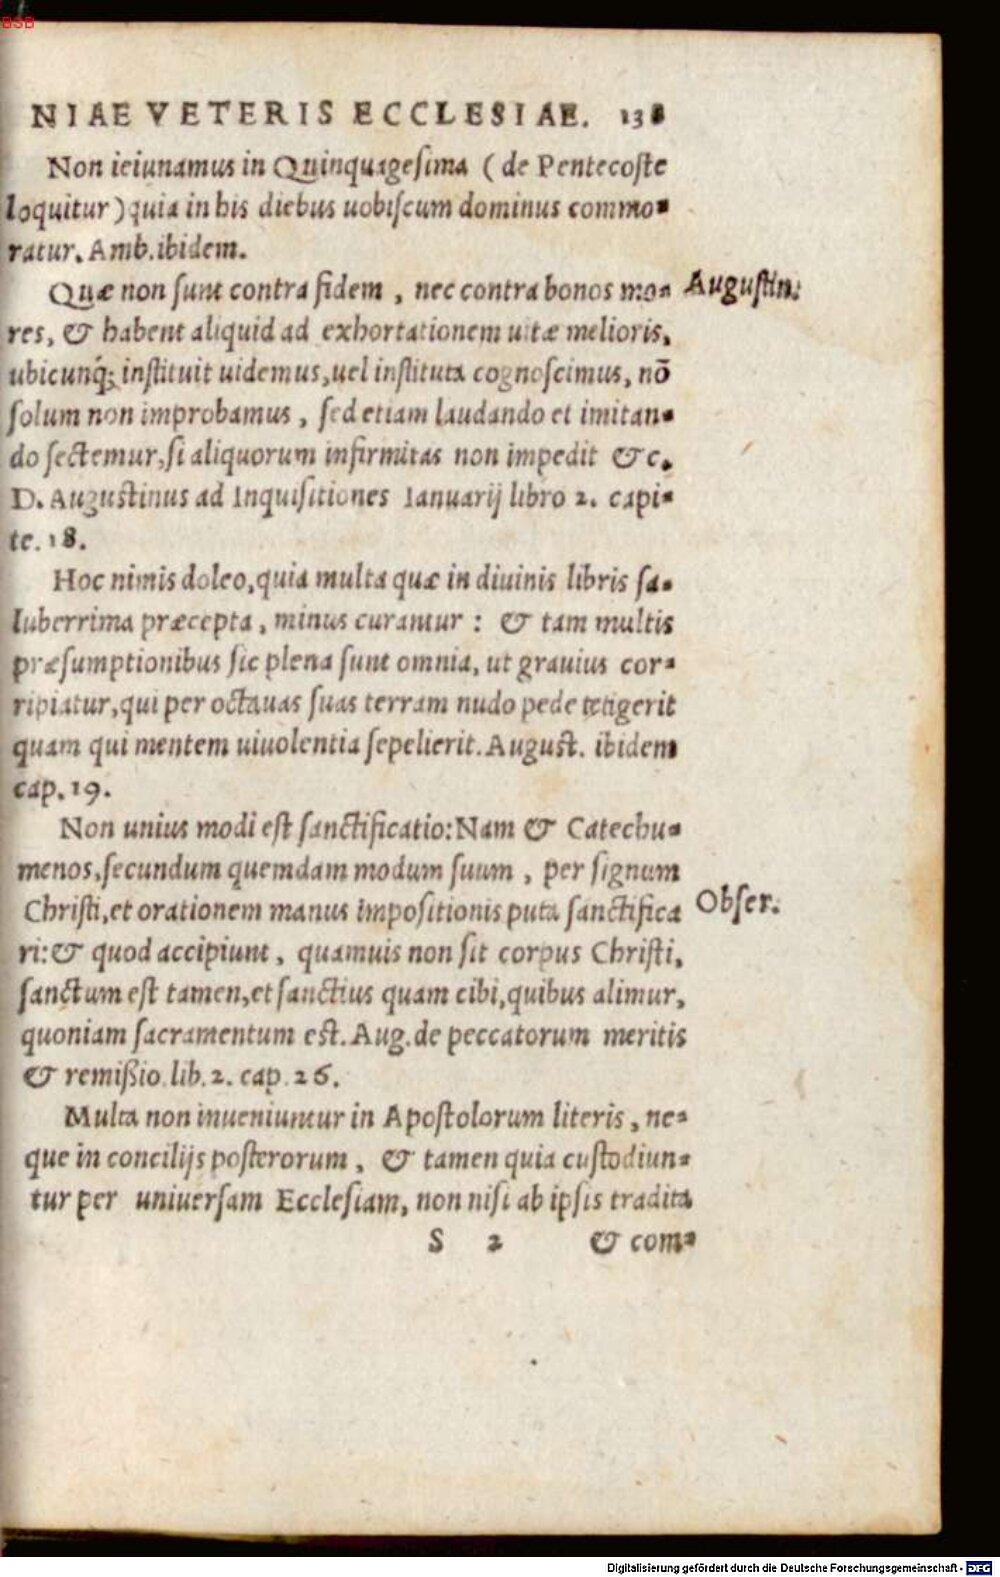 BSB
NIAE VETERIS ECCLESIAE. 138
Non ieiunamus in Quinquagesima (de Pentecoste
loquitur) quia in his diebus uobiscum dominus commo-
ratur. Amb. ibidem.
Quæ non sunt contra fidem, nec contra bonos mo-
Augustin:
res, & habent aliquid ad exhortationem uitæ melioris,
ubicunq; instituit uidemus, uel instituta cognoscimus, nō
solum non improbamus, sed etiam laudando et imitan-
do sectemur, si aliquorum infirmitas non impedit &c.
D. Augustinus ad Inquisitiones Ianuarij libro 2. capi-
te. 18.
Hoc nimis doleo, quia multa quæ in diuinis libris sa-
luberrima præcepta, minus curantur: & tam multis
præsumptionibus sic plena sunt omnia, ut grauius cor-
ripiatur, qui per octauas suas terram nudo pede tetigerit
quam qui mentem uiuolentia sepelierit. August. ibidem
cap. 19.
Non unius modi est sanctificatio: Nam & Catechu-
menos, secundum quemdam modum suum, per signum
Christi, et orationem manus impositionis puta sanctifica
Obser.
ri: & quod accipiunt, quamuis non sit corpus Christi,
sanctum est tamen, et sanctius quam cibi, quibus alimur,
quoniam sacramentum est. Aug. de peccatorum meritis
& remißio. lib. 2. cap. 26.
Multa non inueniuntur in Apostolorum literis, ne-
que in concilijs posterorum, & tamen quia custodiun-
tur per uniuersam Ecclesiam, non nisi ab ipsis tradita
S 2 & com-
Digitalisierung gefördert durch die Deutsche Forschungsgemeinschaft - DFG